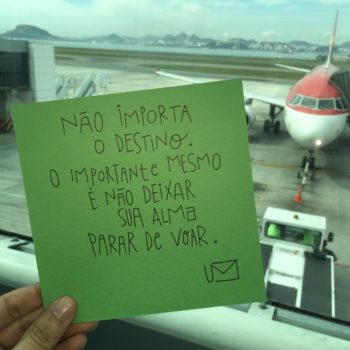 NÃO IMPORTA
O DESTINO.
O IMPORTANTE MESMO
É NÃO DEIXAR
SUA ALMA
PARAR DE VOAR.